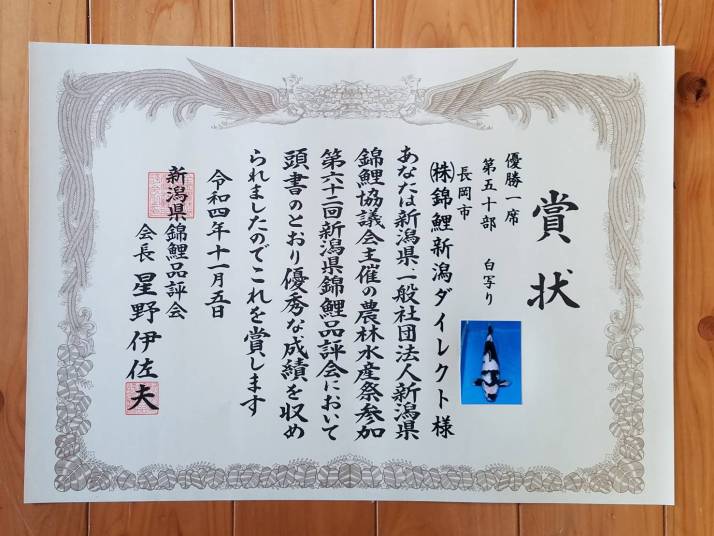 賞状
優勝一席
第五十部 白写り
長岡市
㈱錦鯉新潟ダイレクト様
あなたは新潟県、一般社団法人新潟県
錦鯉協議会主催の農林水産祭参加
第六十二回新潟県錦鯉品評会において
頭書のとおり優秀な成績を収め
られましたのでこれを賞します
令和四年十一月五日
新潟県錦鯉品評会
会長 星野伊佐夫